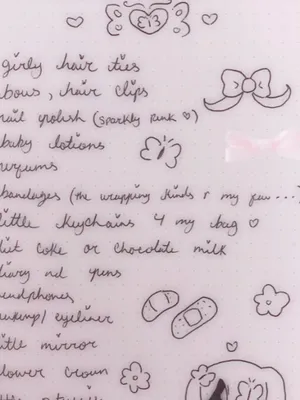 £13
girly hair ties
bows, hair clips
nail polish (sparkly pink ♡)
baby lotions
perfums
bandages (the wrapping kinds r my fav ...)
little keychains 4 my bag ♡
diet coke or chocolate milk
diary nd pens
headphones
eyeliner
little mirror
flower crown
little